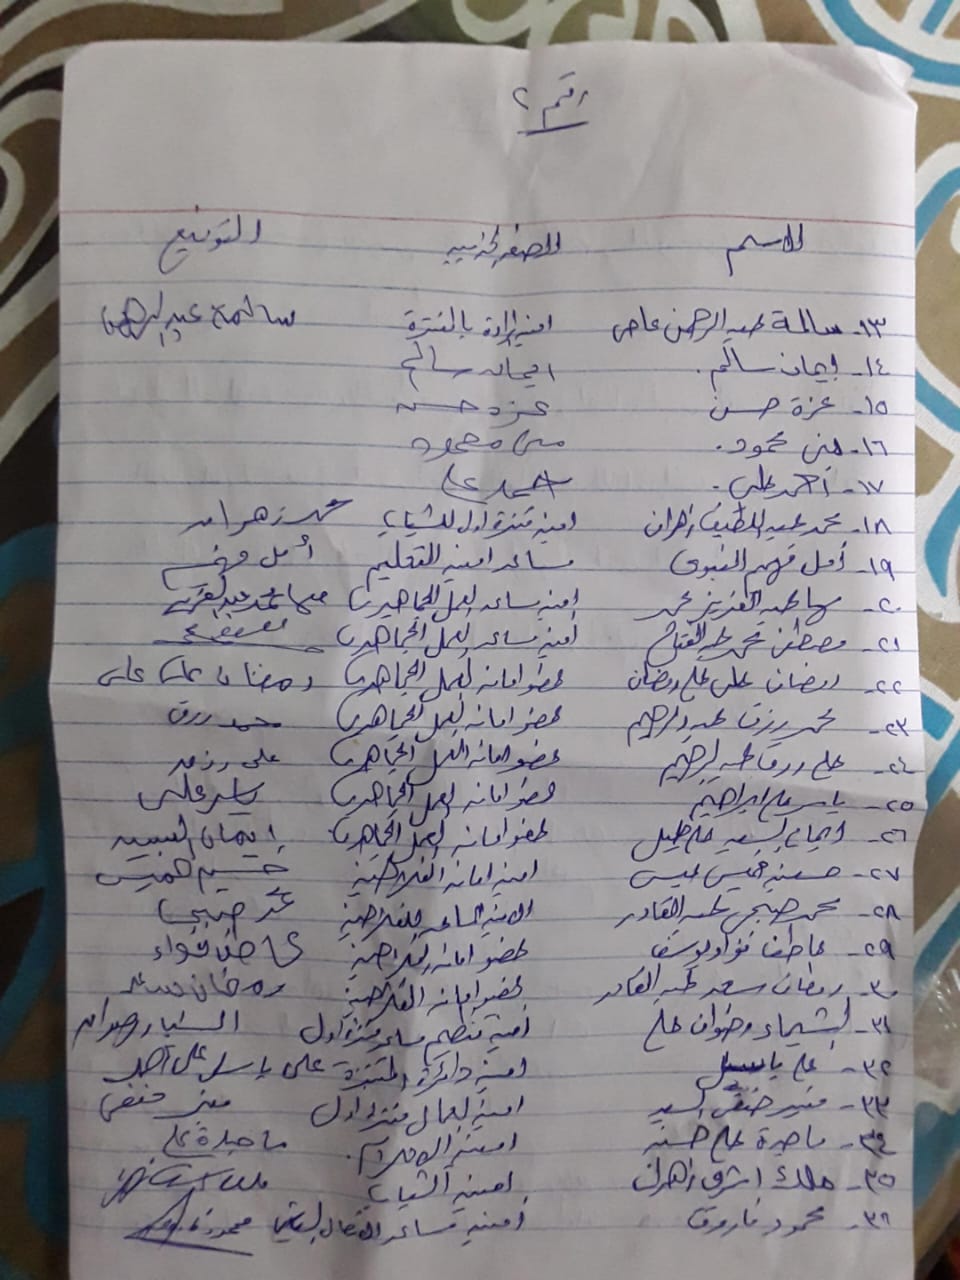 رقم ٢
الاسم الصفة الحزبية التوقيع
١٣- سالمة عبد الرحمن امينة بالمنتزة سالمة عبد الرحمن
١٤- إيمان سالم. ايمان سالم
١٥- عزة حسن عزة حسن
١٦- منى محمود. منى محمود
١٧- أحمد علي. احمد علي
١٨- محمد عبد اللطيف زهران امين منتزة اول للشباب محمد زهران
١٩- أمل فهيم النبوى مساعد امين التعليم أمل فهيم
٢٠- مها عبد العزيز محمد امين مساعد العمل الجماهيرى مها محمد عبد العزيز
٢١- مصطفى محمد امين مساعد العمل الجماهيرى مصطفى
٢٢- رمضان على على رمضان عضو امانة العمل الجماهيرى رمضان على على
٢٣- محمد رزق عبد الرحيم عضو امانة العمل الجماهيرى محمد رزق
٢٤- على رزق عضو امانة العمل الجماهيرى على رزق
٢٥- ياسر على ابراهيم عضو امانة العمل الجماهيرى ياسر على
٢٦- ايمان السيد عضو امانة العمل الجماهيرى إيمان السيد
٢٧- حسنية خميس عيسى امين امانة الفلاحين خميس
٢٨- محمد صبحى عبد القادر الامين المساعد للفلاحين محمد صبحى
٢٩- عاطف فؤاد يوسف عضو امانة الفلاحين عاطف فؤاد
٣٠- رمضان سعد عبد القادر عضو امانة الفلاحين رمضان سعد
٣١- شيماء رضوان على امينة تنظيم مساعد منتزة اول الشيماء رضوان
٣٢- على باسل امين دائرة المنتزة على باسل على احمد
٣٣- منير حنفى السيد امين العمال منتزة اول منير حنفى
٣٤- ماجدة على حسن امينة المرأة. ماجدة على
٣٥- ملك اشرف زهران امينة الشباب
٣٦- محمود فاروق امين مساعد محمود فاروق